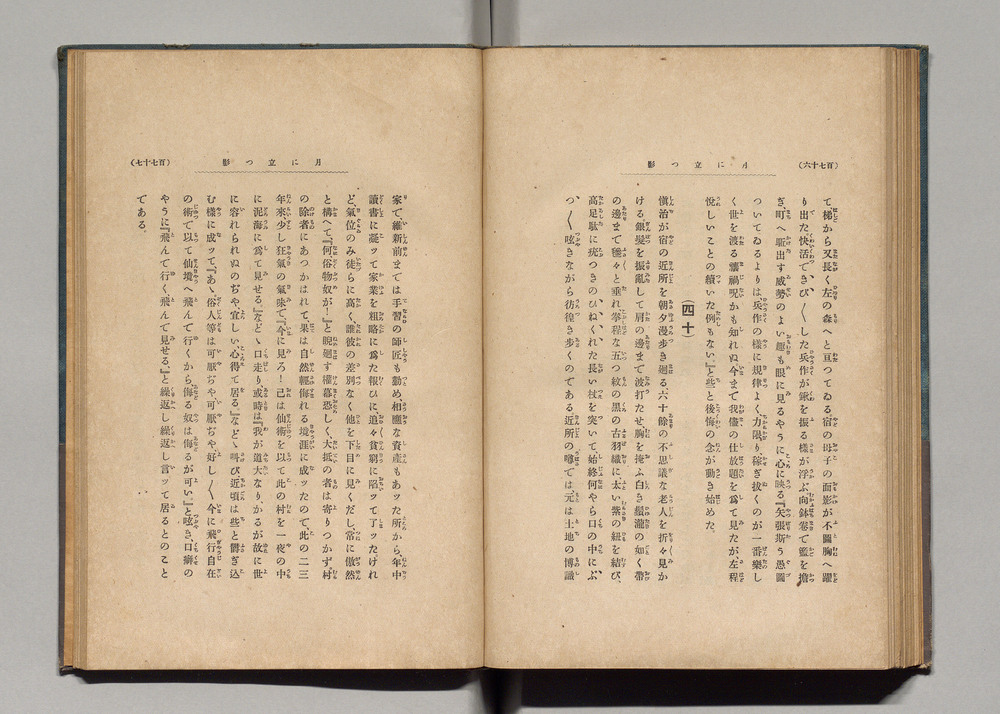 (百七十六)
月に立つ影
て梯から又長く左の森へと亘つてゐる宿の母子の面影が不圖胸へ躍
り出た快活できび〱した兵作が鍬を振る樣が浮ぶ、向鉢卷で籃を擔
ぎ、町へ駈出す威勢のよい姿も眼に見るやうに心に映る『矢張斯う愚圖
ついてゐるよりは、兵作の樣に規律よく力限り稼ぎ拔くのが一番樂し
く世を渡る禁禍呪かも知れぬ今まで我儘の仕放題を爲て見たが、左程
悅しいことの續いた例もない。』と些と後悔の念が動き始めた。
(四十)
愼治が宿の近所を朝夕漫歩き廻る、六十餘の不思議な老人を折々見か
ける銀髮を振亂して肩の邊まで波打たせ胸を掩ふ白き髯瀧の如く帶
の邊まで種々と垂れ拳程な五つ紋の黑の古羽織に太い紫の紐を結び、
高足駄に疣つきのひねくれた長い杖を突いて始終何やら口の中にぶ、
つ〱呟きながら彷徨き步くのである近所の噂では元は土地の博識
(百七十七)
月に立つ影
家で、維新前までは手習の師匠も勤め、相應な資產もあッた所から、年中
讀書に凝て家業を粗略に爲た報ひに追々貧窮に陷ッて了ッた、けれ
ど、氣位のみ徒らに高く、誰彼の差別なく他を下目に見くだし、常に傲然
と構へて『何俗物奴が!』と睨廻す權幕恐しく、大抵の者は寄りつかず、村
の除者にあつかはれて、果は自然輕侮れる境涯に成ッたので、此の二三
年來少し狂氣の氣味で、『今に見ろ!己は仙術を以て此の村を一夜の中
に泥海に爲て見せる。』などゝ口走り、或時は『我が道大なり、かるが故に世
に容れられぬのぢや宜しい心得て居る』などゝ叫び近頃は些と鬱ぎ込
む樣に成ッて『あゝ俗人等は可厭ぢや、可厭ぢや、好し〱今に飛行自在
の術で以て仙境へ飛んで行くから、侮る奴は侮るが可い。』と呟き、口癖の
やうに『飛んで行く飛んで見せる。』と繰返し繰返し言ッて居るとのこと
である。